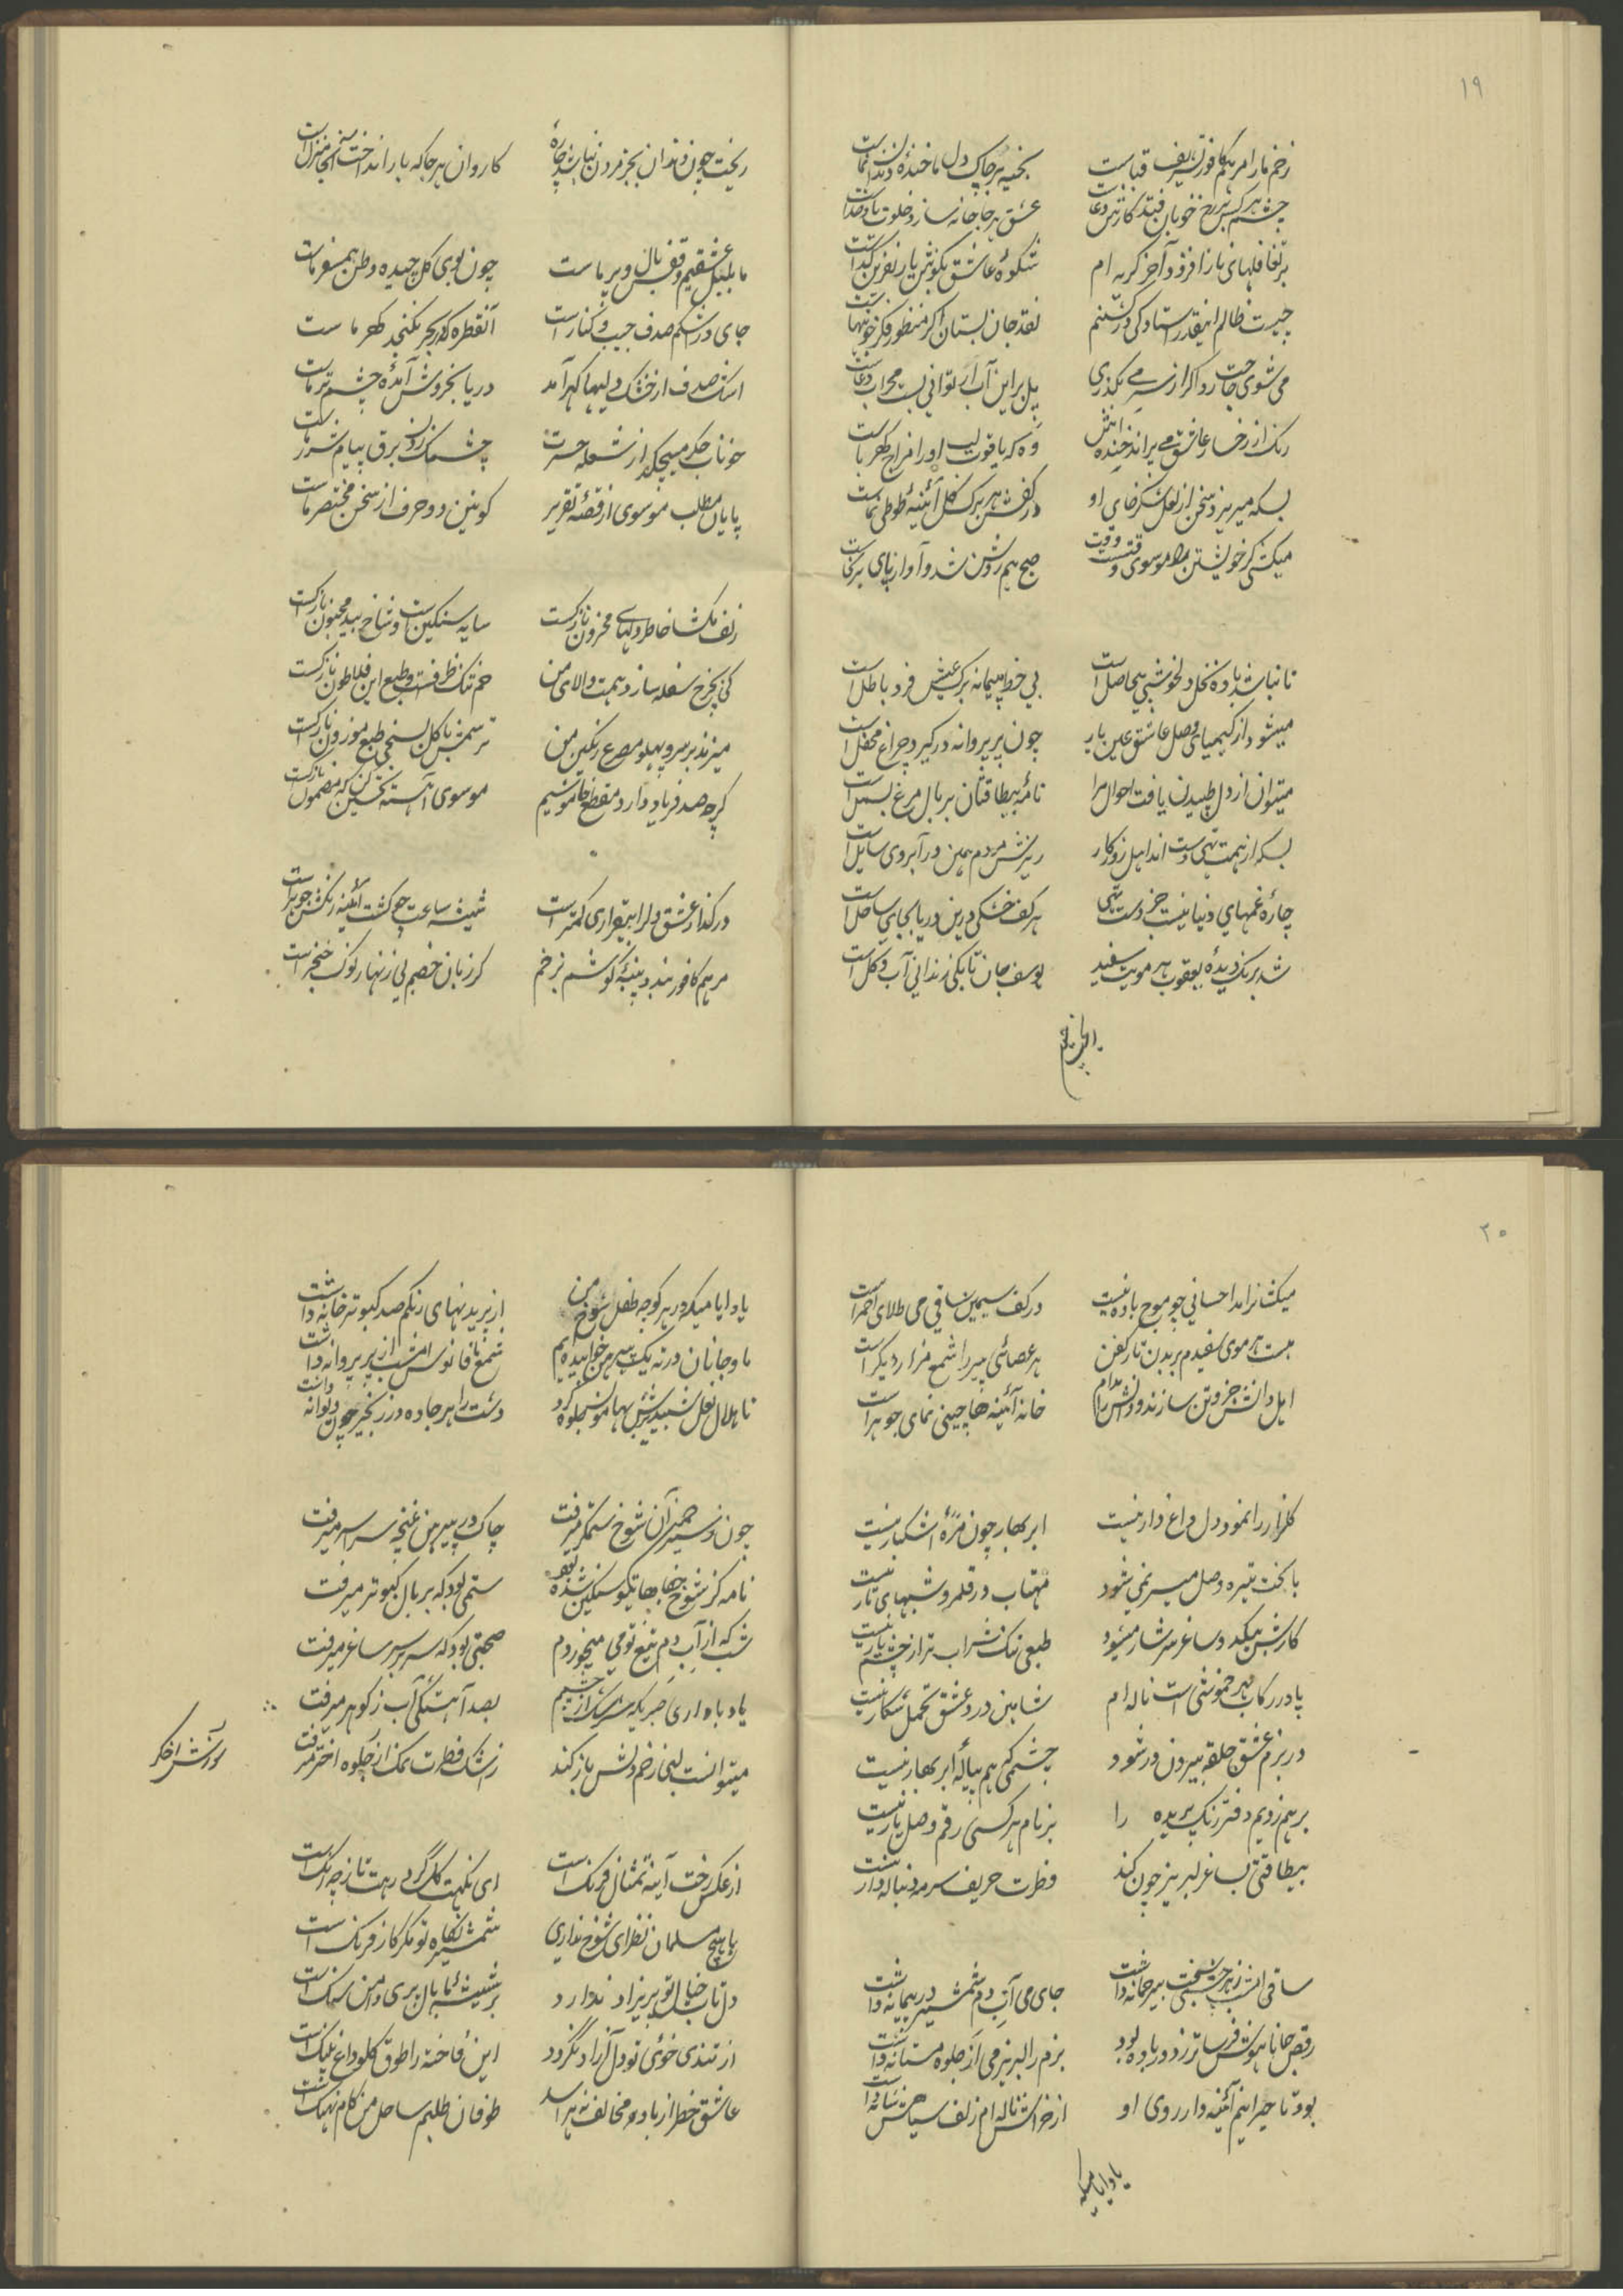 ۱۹
زخم ما را مرهم کافور تشریف قباست
بخیه هر چاک دل ما خنده دندان نماست
چشم هر کس بر رخ خوبان فتد کارش دعاست
عشق هر جا خانه سازد خلوت یاد خداست
بر تغافلهای ناز افزود آخر گریه ام
شکوه عاشق بگوش یار نفرین گداست
چیست ظالم اینقدر استادگی در کشتنم
نقد جان بستان اگر منظور فکر خونبهاست
می شوی حاجت روا گر از سر می بگذری
پل بر این آب ار توانی بست محراب دعاست
رنگ از رخسار عاشق می پراند خنده اش
وه که یاقوت لب او را مزاج کهرباست
بسکه میریزد سخن از لعل شکرخای او
در کفش هر برگ گل آئینه طوطی نماست
میکشی گر خویشتن را موسوی وقتست وقت
صبح هم روشن شد و آواز پای برنخاست
تا نباشد باده نخل دلخوشی بیحاصل است
بی خط پیمانه برگ عیش فرد باطل است
میشود از کیمیای وصل عاشق عین یار
چون پر پروانه درگیرد چراغ محفل است
میتوان از دل طپیدن یافت احوال مرا
نامه بیطاقتان بر بال مرغ بسمل است
بسکه از همت تهی دست اند اهل روزگار
ریزش مردم همین در آبروی سایل است
چاره غمهای دنیا نیست جز دست تهی
هر کف خشکی درین دریا بجای ساحل است
شد برنگ دیده یعقوب هر مویت سفید
یوسف جان تا بکی زندانی آب و گل است
ریخت چون دندان بجز مردن نباشد چاره
کاروان هر جا که بار انداخت آنجا منزل است
ما بلبل عشقیم و قفس بال و پر ماست
چون بوی گل چیده وطن همسفر ماست
جای در اشکم صدف جیب و کنار است
آنقطره که در بحر نگنجد گهر ماست
اشک صدف از خشک دلیها گهر آمد
دریا بخروش آمده چشم تر ماست
خوناب جگر میچکد از شعله حسرت
چشمک زدن برق پیام شرر ماست
پایان مطلب موسوی از قصه تقریر
کونین دو حرف از سخن مختصر ماست
زلف مکشا خاطر دلهای محزون نازکست
سایه سنگین است و شاخ بید مجنون نازکست
کی بچرخ سفله سازد همت والای من
خم تنک ظرفست و طبع این فلاطون نازکست
میزند بر سرو پهلو مصرع رنگین من
ترسمش با گل بسنجی طبع موزون نازکست
گر چه صد فریاد دارد مقطع خاموشیم
موسوی آهسته تحسین کن که مضمون نازکست
در گداز عشق دلرا بیقراری کمتر است
شیشه ساعت چو گشت آئینه رنگش جوهر است
مرهم کافور بندد پنبه گوشم بزخم
گر زبان خصم بی زنهار نوک خنجر است
۲۰
میکشانرا مد احسانی چو موج باده نیست
در کف سیمین ساقی می طلای احمر است
هست هر موی سفیدم بر بدن تار کفن
هر عصائی پیر را شمع مزار دیگر است
اهل دانش جز وتن سازند دانش را مدام
خانه آئینه ها چینی نمای جوهر است
گلزار را نمود دل داغ دار نیست
ابر بهار چون مژه اشکبار نیست
با بخت تیره وصل میسر نمی شود
مهتاب در قلمرو شبهای تار نیست
طبعی تنک شراب تر از چشم یار نیست
پا در رکاب مهر خموشی است ناله ام
شاهین درد عشق تحمل شکار نیست
در بزم عشق حلقه بیرون در شود
چشمی که هم پیاله ابر بهار نیست
بر هم زدیم دفتر رنگ پریده را
بر نام هر کسی رقم وصل یار نیست
بیطاقتی بساغر لبریز چون کند
فطرت حریف سرمه دنباله دار نیست
ساقی امشب زهر چشمی سخت بیرحمانه داشت
جای می آب دم شمشیر در پیمانه داشت
رقص جانها هوش فرساتر ز دور باده بود
بزم را لبریز می از جلوه مستانه داشت
بود تا حیرانیم آئینه دار روی او
از خراش ناله ام زلف سیاهش شانه داشت
یاد ایامیکه
یاد ایامیکه در هر کوچه طفل شوخ من
از پریدنهای رنگم صد کبوتر خانه داشت
ما و جانان در ته یک پیرهن خوابیده ایم
شمع ما فانوس امشب از پر پروانه داشت
تا هلال نعل شبدیزش بهامون جلوه کرد
دشت را هر جاده در زنجیر چون دیوانه داشت
چون نسیم سحر آن شوخ ستمگر میرفت
چاک در پیرهن غنچه سراسر میرفت
نامه کز شوخ جفاها بتو سنگین شده بود
ستمی بود که بر بال کبوتر میرفت
شب که از آب دم تیغ تو می میخوردم
صحبتی بود که سر بر سر ساغر میرفت
یاد باد آری خبر یکه سرشک از چشمم
بصد آهستگی آب ز گوهر میرفت
میتوانست لبی زخم دلش باز کند
ز اشک فطرت نمک از جلوه اختر میرفت
از عکس رخت آینه تمثال فرنگ است
ای نگهت گل گرد رهت تا ز چه رنگ است
با هیچ مسلمان نظر ای شوخ نداری
شمشیر نگاه تو مگر کار فرنگ است
دل تاب خیال تو پریزاد ندارد
بر شیشه ما بال پری دامن سنگ است
از تندی خوی تو دل آزاد نگردد
این فاخته را طوق گلو داغ پلنگ است
عاشق خطر از باد مخالف نهراسد
طوفان طلبم ساحل من کام نهنگ است